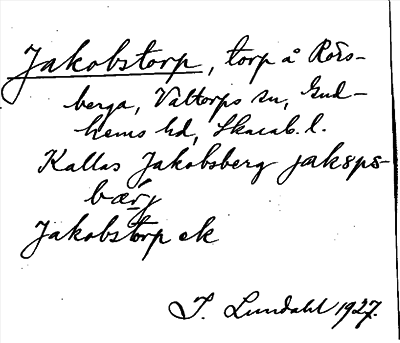 Jakobstorp, torp å Rörs-
berga, Valtorps sn, Gud-
hems hd, Skarab. l.
Kallas Jakobsberg jakəps-
bærj
Jakobstorp ek
I. Lundahl 1927.